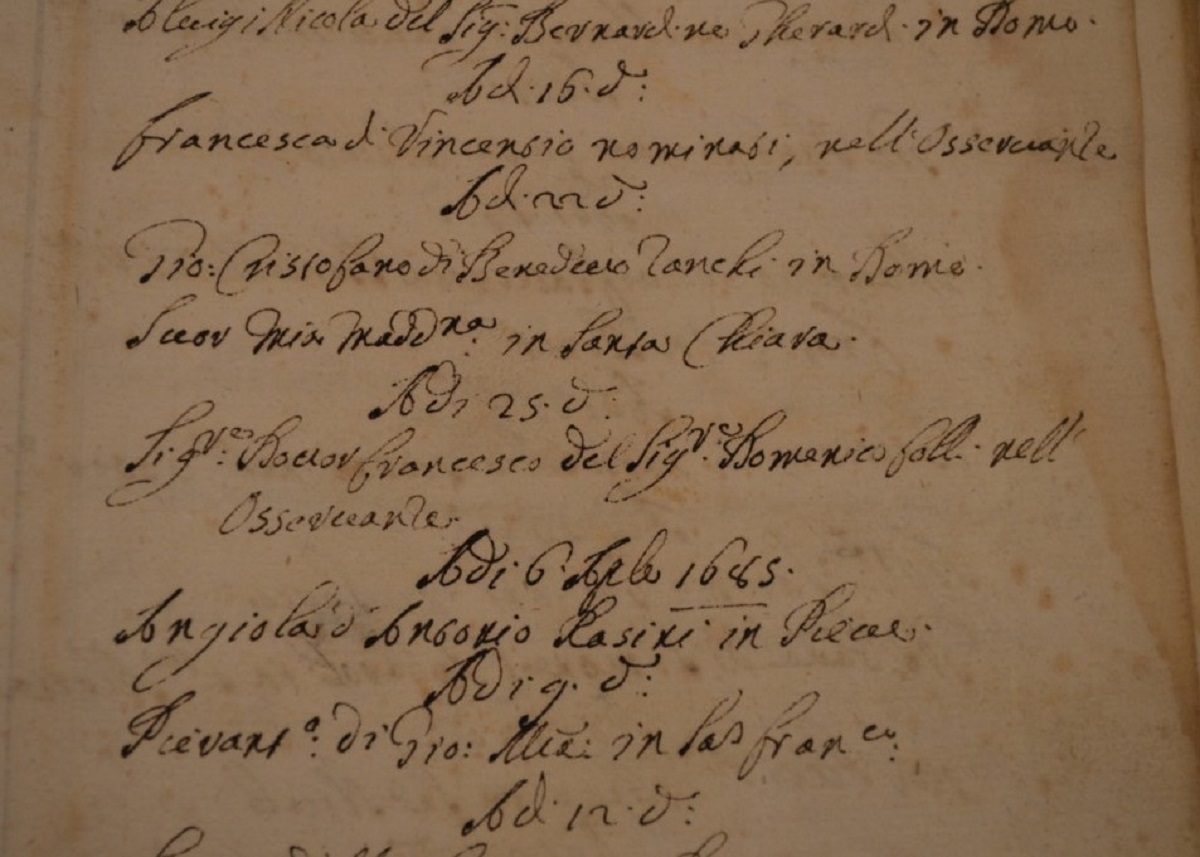 Aluigi Nicola del Sig: Bernardino Gherardi in Domo.
Adi 16. d:
Francesca di Vincenzio nominati, nell'Osservante
Adi 22 d:
Gio: Cristofano di Benedetto Zanchi in Domo.
Suor Mia Madd.na in Santa Chiara.
Adi 25. d:
Sig.re Dottor Francesco del Sig.re Domenico folli nell'
Osservante.
Adi 6 Aple 1685.
Angiola d'Antonio Pasini in Pieve.
Adi 9. d:
Pievant.o di Gio: in San Fran.co:
Adi 12. d: